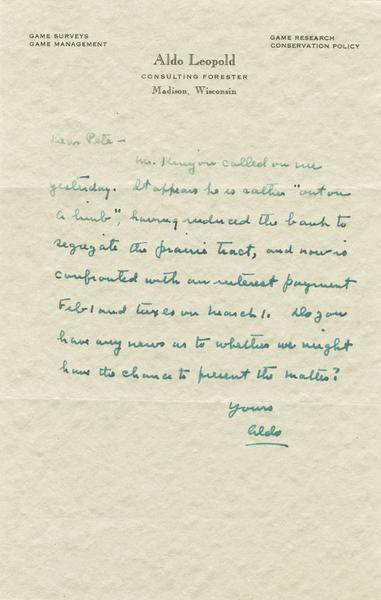 GAME SURVEYS
GAME MANAGEMENT
GAME RESEARCH
CONSERVATION POLICY
Aldo Leopold
CONSULTING FORESTER
Madison, Wisconsin
Dear Pete –
Mr. Kenyon called on me
yesterday. It appears he is rather "out on
a limb", having induced the bank to
segregate the prairie tract, and now is
confronted with an interest payment
Feb 1 and taxes on March 1. Do you
have any news as to whether we might
have the chance to present the matter?
Yours
Aldo